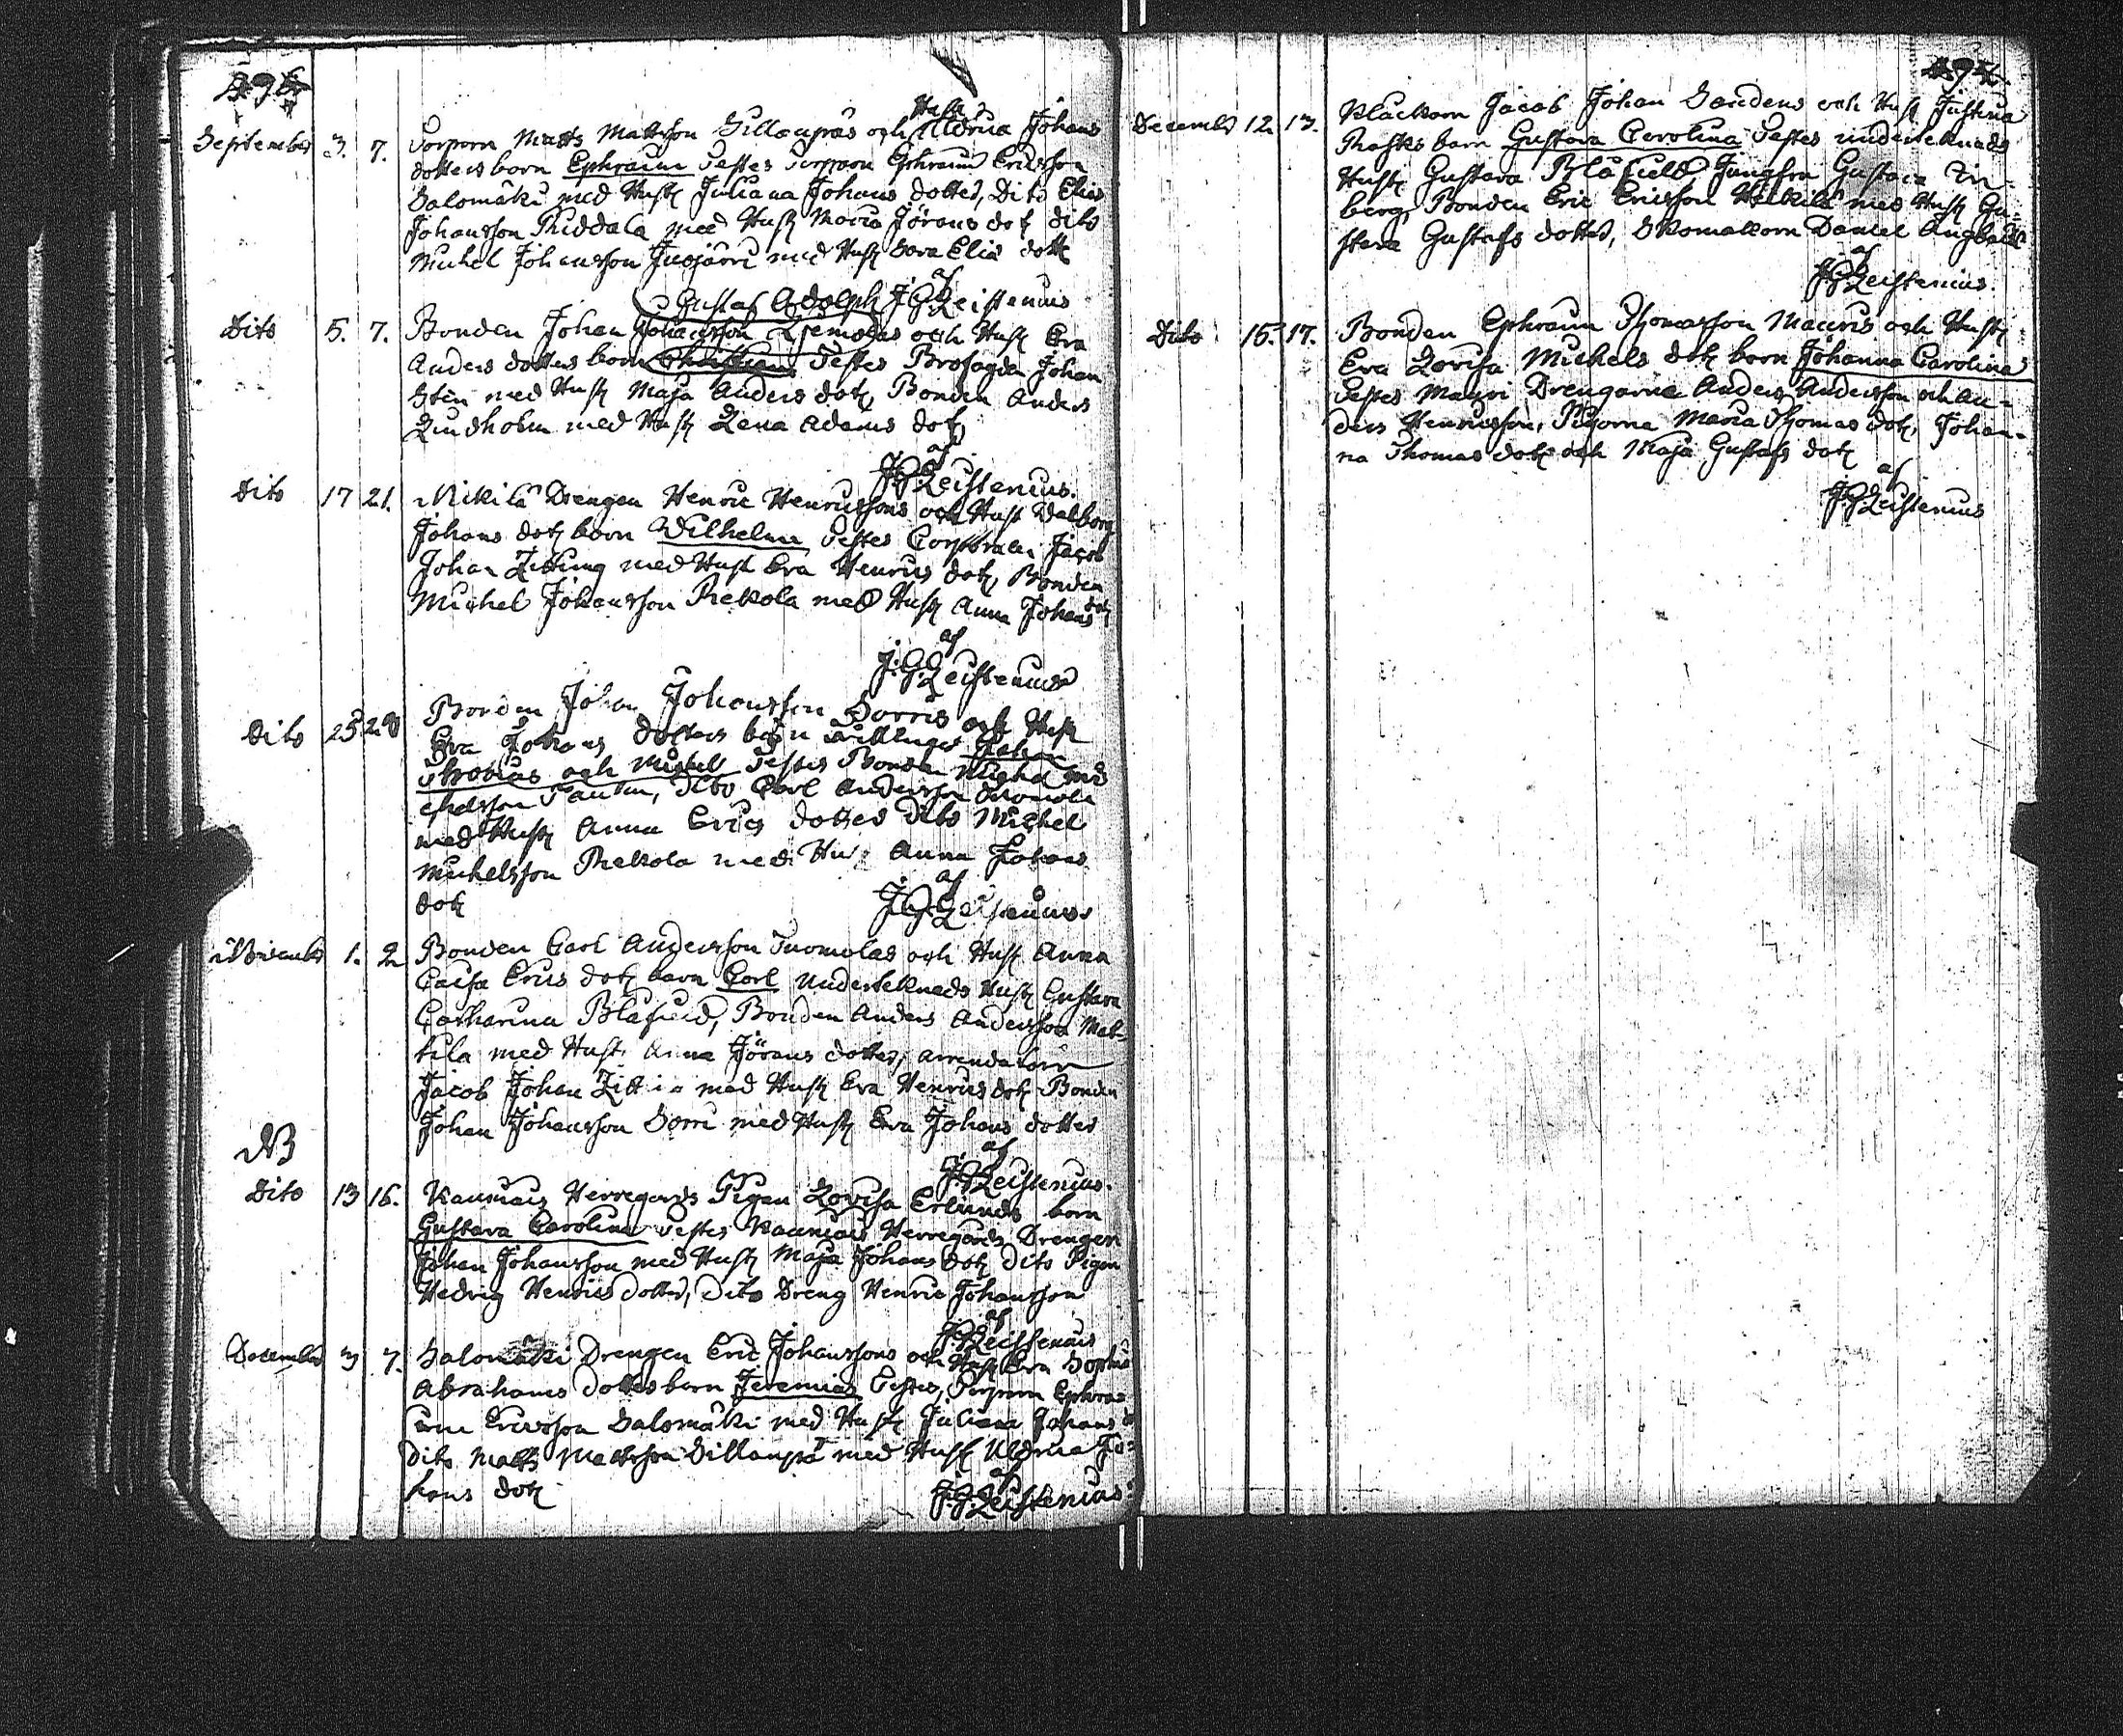 September 3. 7. Torparn Matts Mattsson Sillanpääs och Hustr Uldrica Johans
dotters barn Ephraim Testes Torparn Ephraim Ericsson
Salomäki med Hustr Juliana Johans dotter, Dito Elias
Johansson Middala med Hustr Maria Jörans dotr dito
Michel Johansson Isojärri med Hustr Sara Elia dottr
af
JGLeistenius
Gustaf Adolph
Dito 5. 7. Bonden Johan Johansson och Hustr Eva
Anders dotters barn Testes Brofogden Johan
Sten med Hustr Maja Anders dotr, Bonden Anders
Lindholm med Hustr Lena Adams dotr
af
JGLeistenius.
Dito 17 21. Mikilä Drengen Henric Henricssons och Hustr Walborg
Johans dotr barn Wilhelm Testes Corporalen Jacob
Johan Zitting med Hustr Eva Henrics dotr, Bonden
Michel Johansson Rekola med Hustr Anna Johans dotr
af
J.G.Leistenius
Dito 25 28 Bonden Johan Johansson Sorris och Hustr
Eva Johans dotters barn Tvillingar Johan
och Michel Testes Bonden Michel Mi
chelsson Dito Carl Andersson Tuomola
med Hustr Anna Erics dotter Dito Michel
Michelsson Rekola med Hu Anna Johans
dotr
af
JGLeistenius
November 1. 2 Bonden Carl Andersson Tuomolas och Hustr Anna
Caisa Erics dotr barn Carl Underteknads Hustr Gustava
Catharina Blåfield, Bonden Anders Andersson Mat-
tila med Hustr Anna Jörans dotter, arrendatorn
Jacob Johan Zitting med Hustr Eva Henrics dotr Bonden
Johan Johansson Sorri med Hustr Eva Johans dotter
af
JGLeistenius.
NB
Dito 13 16. Kauniais Herregårds Pigan Lovisa Erlunds barn
Gustava Carolina Testes Kauniais Herregårds Drengen
Johan Johansson med Hustr Maja Johans dotr Dito Pigan
Hedvig Henrics dotter, Dito Dreng Henric Johansson
af
JGLeistenius
December 3 7. Salomäki Drengen Eric Johanssons och Hustr Eva Sophia
Abrahams dotters barn Jeremias Testes, Torparn Ephra-
im Ericsson Salomäki med Hustr Juliana Johans d
Dito Matts Mattsson Sillanpä med Hustr Uldrica Jo-
hans dotr
af
JGLeistenius.
December 12 13. Klåckarn Jacob Johan Sandens och Hustr Justina
Rasks barn Gustava Carolina Testes undertecknads
Hustr Gustava Blåfield Jungfru Gustava
berg, Bonden Eric Ericsson med Hustr Gu-
stava Gustafs dotter, Skomakarn Daniel
af
JGLeistenius.
Dito 15. 17. Bonden Ephraim Thomasson Mauris och Hustr
Eva Lovisa Michels dotr barn Johanna Carolina
Testes Mauri Drengarna Anders Andersson och An-
ders Henricsson, Pigorna Maria Thomas dotr, Johan-
na Thomas dotr och Maja Gustafs dotr
af
JGLeistenius